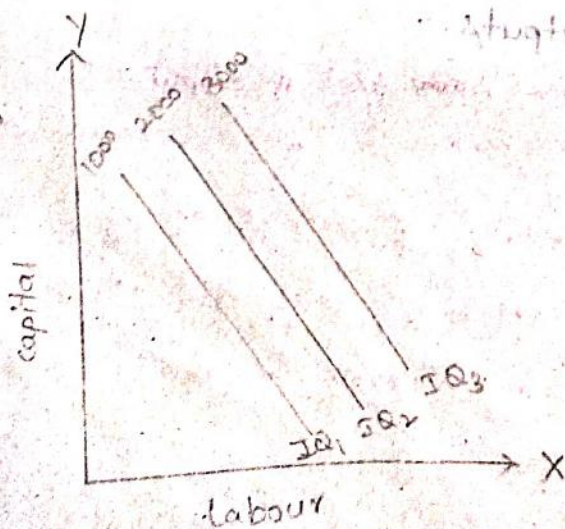 Y
1000 2000 3000
capital
IQ1 IQ2 IQ3
X
Labour